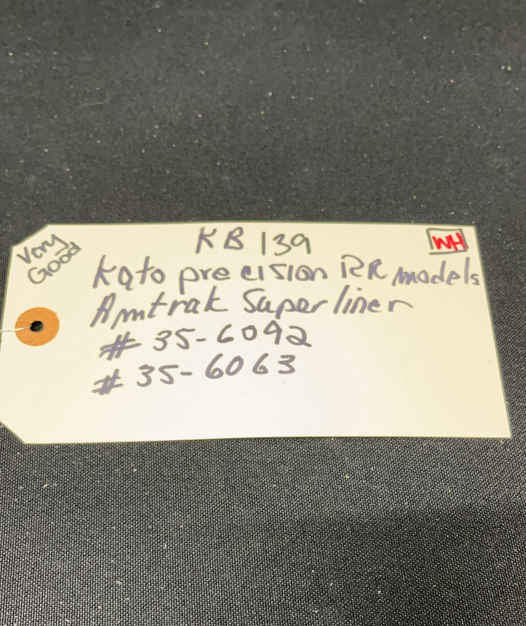 Very
Good
KB 139
WH
Kato precision RR models
Amtrak Superliner
# 35-6092
# 35-6063